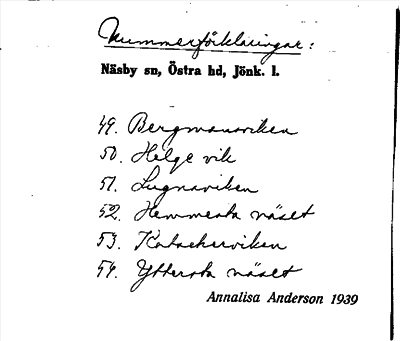 Nummerförklaringar:
Näsby sn, Östra hd, Jönk. l.
49. Bergmansviken
50. Helge vik
51. Lugnaviken
52. Hemmersta näset
53. Katscherviken
54. Yttersta näset
Annalisa Anderson 1939